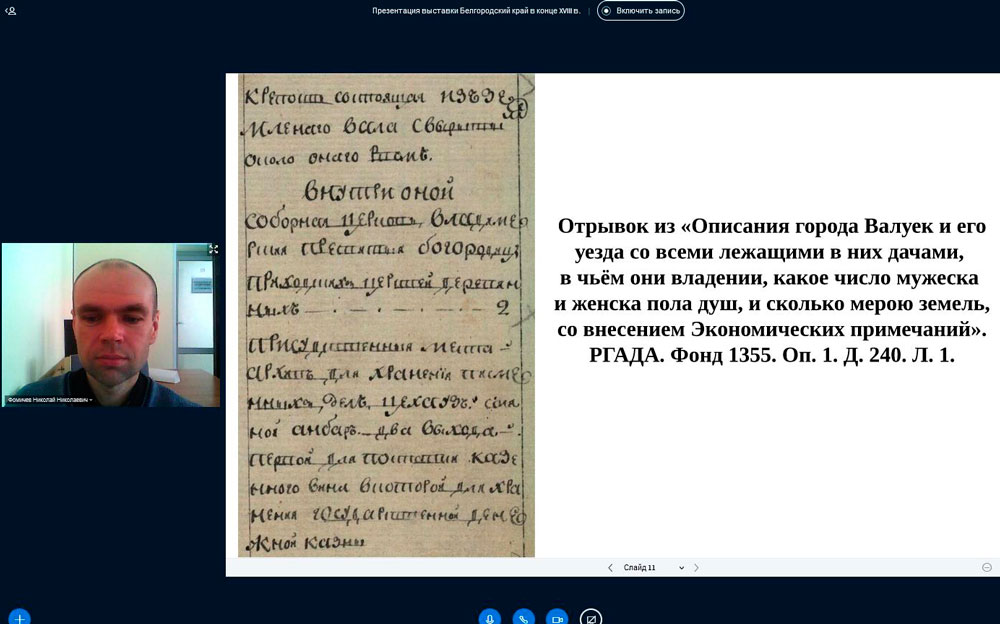 Презентация выставки Белгородский край в конце XVIII в.
Включить запись
Крепость состоящая изъ зе
мленаго вала с
около онаго рвомъ.
внутри оной
соборная церковь, владиме
рския пресвятыя богородицы
приходскихъ церквей деревян
ныхъ — . — . — . — 2
присудственныя места —
архивъ для хранения писме
нныхъ делъ,
ной анбаръ — два выхода —
первой для поставки казе
нного вина второй для хра
нения государственной ден
жной казны
Отрывок из «Описания города Валуек и его
уезда со всеми лежащими в них дачами,
в чьём они владении, какое число мужеска
и женска пола душ, и сколько мерою земель,
со внесением Экономических примечаний».
РГАДА. Фонд 1355. Оп. 1. Д. 240. Л. 1.
Фомичев Николай Николаевич
Слайд 11